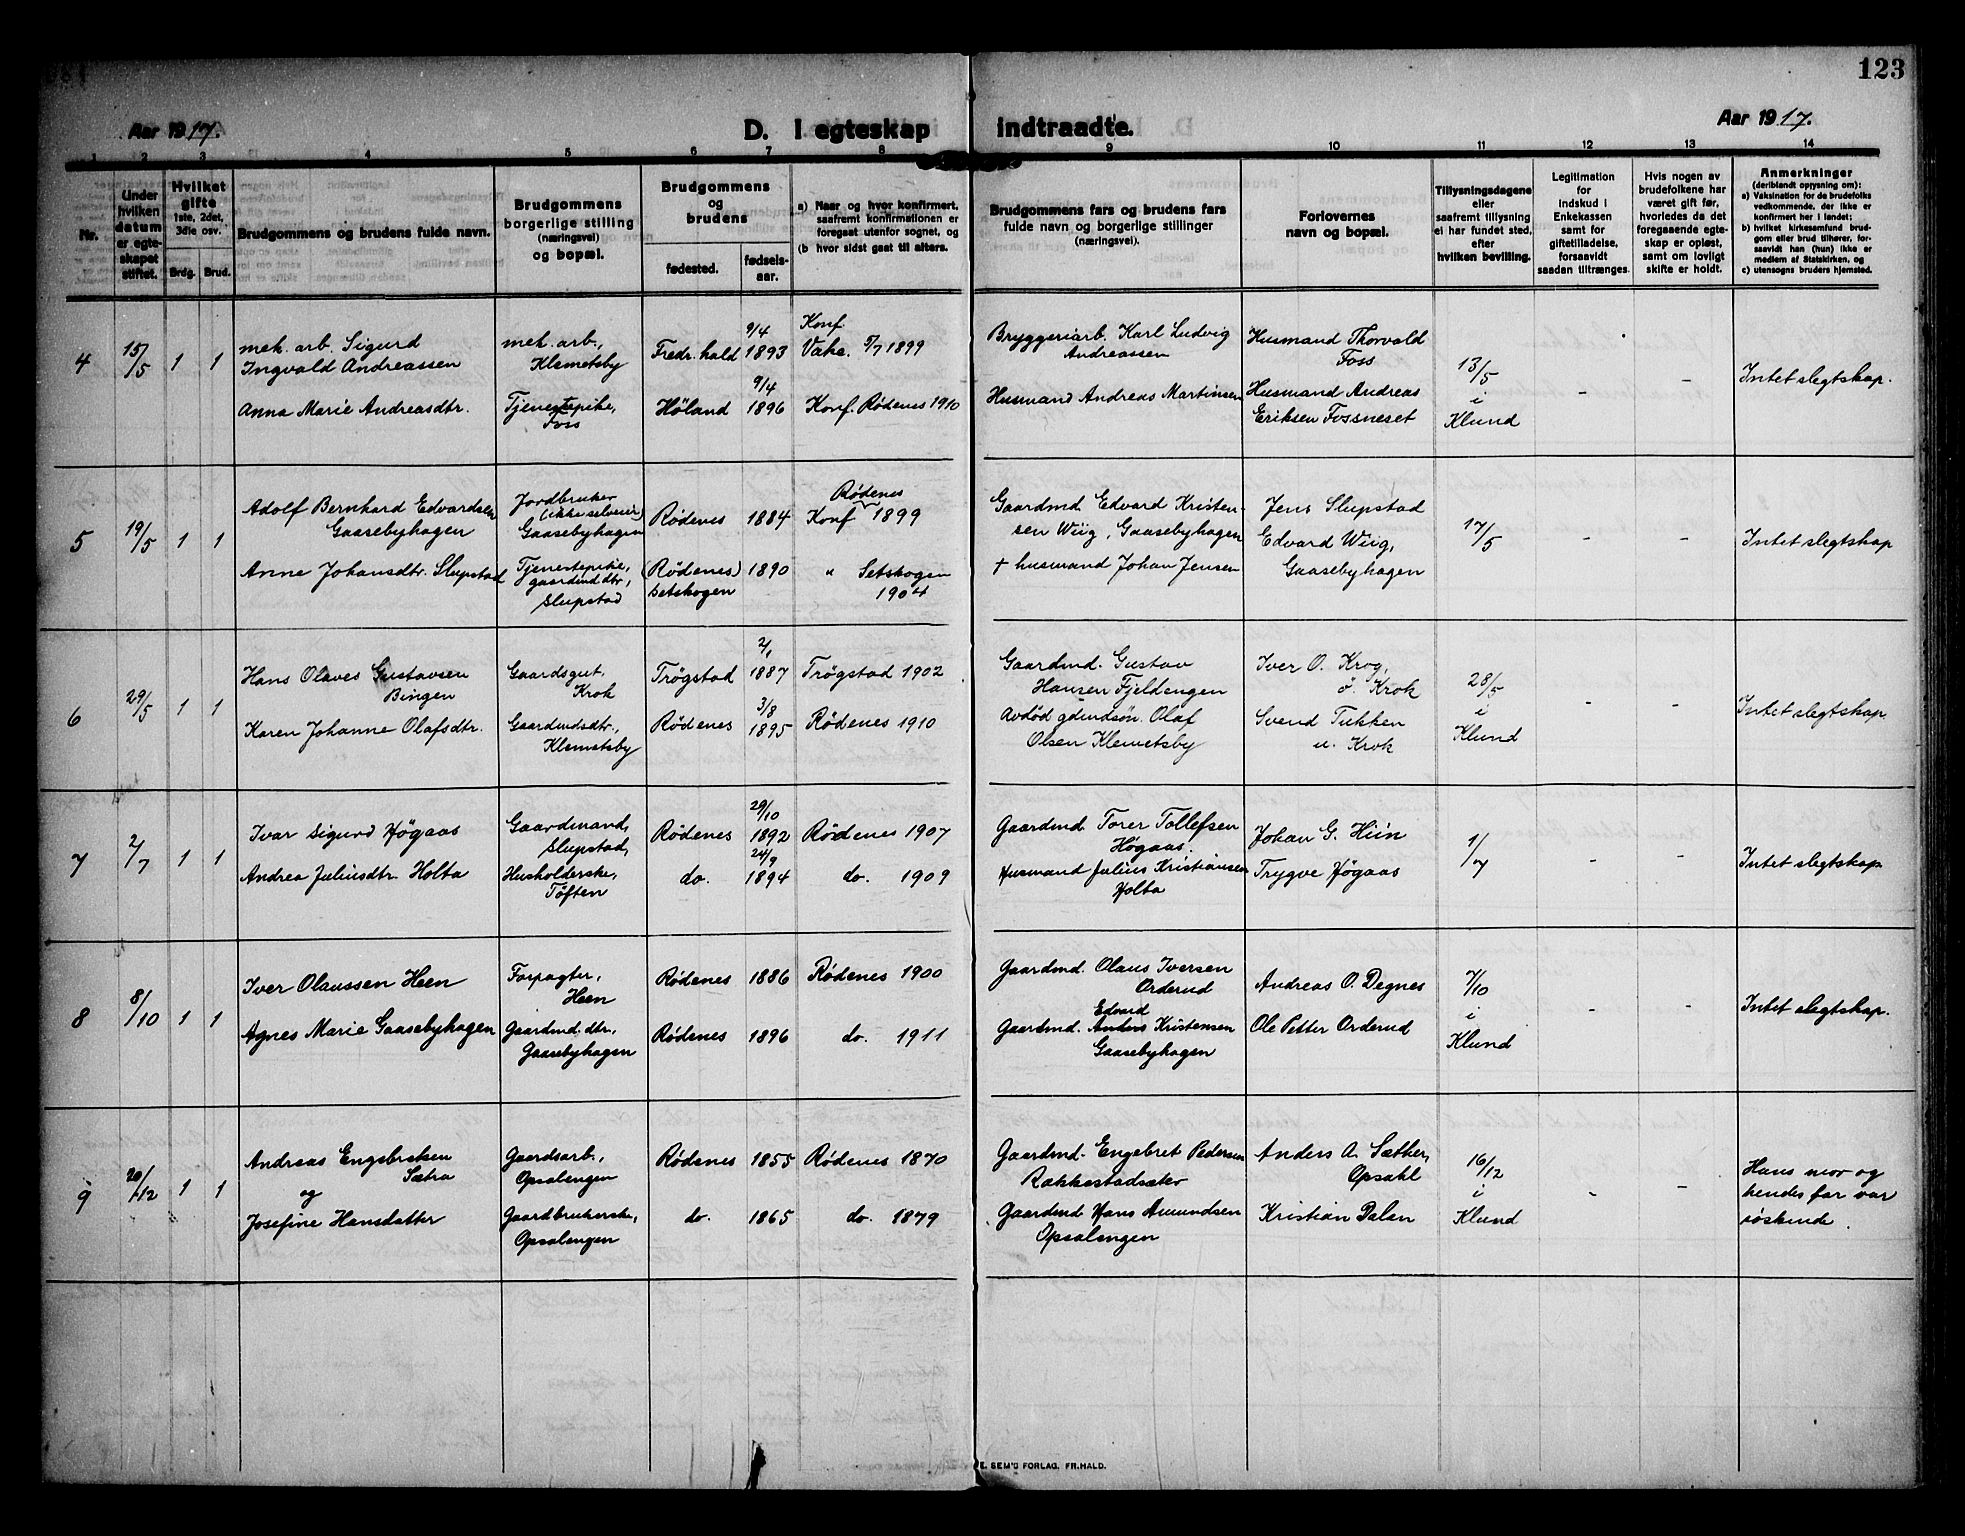 123
Aar 1917.
D. I egteskap indtraadte.
Aar 1917.
1 2 3 4 5 6 7 8 9 10 11 12 13 14
Nr.
Under
hvilken
datum
er egte-
skapet
stiftet.
Hvilket
gifte
1ste, 2det,
3die osv.
Brdg. Brud.
Brudgommens og brudens fulde navn.
Brudgommens
borgerlige stilling
(næringsvei)
og bopæl.
Brudgommens
og
brudens
fødested.
fødsels-
aar.
a) Naar og hvor konfirmert,
saafremt konfirmationen er
foregaat utenfor sognet, og
(b hvor sidst gaat til alters.
Brudgommens fars og brudens fars
fulde navn og borgerlige stillinger
(næringsvei).
Forlovernes
navn og bopæl.
Tillysningsdagene
eller
saafremt tillysning
ei har fundet sted,
efter
hvilken bevilling.
Legitimation
for
indskud i
Enkekassen
samt for
giftetilladelse,
forsaavidt
saadan tiltrænges.
Hvis nogen av
brudefolkene har
været gift før,
hvorledes da det
foregaaende egte-
skap er opløst,
samt om lovligt
skifte er holdt.
Anmerkninger
(deriblandt oplysning om):
a) Vaksination for de brudefolks
vedkommende, der ikke er
konfirmert her i landet;
b) hvilket kirkesamfund brud-
gom eller brud tilhører, for-
saavidt han (hun) ikke er
medlem af Statskirken, og
c) utensogns bruders hjemsted.
4
15/5
1 1
mek. arb. Sigurd
Ingvald Andreassen
Anna Marie Andreasdtr.
mek. arb.,
Klemetsby
Tjenestepike,
Foss
Fredr.hald
9/4
1893
Høland
9/4
1896
Konf.
Vakc. 5/7 1899
Konf. Rødenes 1910
Bryggeriarb. Karl Ludvig
Andreassen
Husmand Andreas Martinsen
Husmand Thorvald
Foss
Husmand Andreas
Eriksen Fossneset
13/5
i
Klund
-
-
Intet slegtskap.
5
19/5
1 1
Adolf Bernhard Edvardsen
Gaasebyhagen
Anne Johansdtr. Slupstad
Jordbruker
(ikke selveier)
Gaasebyhagen
Tjenestepike,
gaardmd dtr,
Slupstad
Rødenes 1884
(Rødenes) 1890
Setskogen
Rødenes
Konf 1899
" Setskogen
1904
Gaardmd Edvard Kristen-
sen Wiig, Gaasebyhagen
+ husmand Johan Jensen
Jens Slupstad
Edvard Wiig,
Gaasebyhagen
17/5
-
-
Intet slegtskap
6
29/5
1 1
Hans Olaves Gustavsen
Bingen
Karen Johanne Olafsdtr.
Gaardsgut,
Krok
Gaardmdsdtr.,
Klemetsby
Trøgstad
2/1
1887
Rødenes
3/8
1895
Trøgstad 1902
Rødenes 1910
Gaardmd. Gustav
Hansen Fjeldengen
Avdød gdmdsøn. Olaf
Olsen Klemetsby
Iver O. Krog,
ö. Krok
Svend Tukken
u. Krok
28/5
i
Klund
-
-
Intet slegtskap.
7
2/7
1 1
Ivar Sigurd Høgaas
Andrea Juliusdtr. Holta
Gaardmand,
Slupstad,
Husholderske,
Töften
Rødenes
29/10
1892
do.
24/9
1894
Rødenes 1907
do. 1909
Gaardmd. Torer Tollefsen
Høgaas.
Husmand Julius Kristiansen
Holta
Johan G. Hiin
Trygve Høgaas
1/7
-
-
Intet slegtskap
8
8/10
1 1
Iver Olaussen Heen
Agnes Marie Gaasebyhagen
Forpagter,
Heen
Gaardmd. dtr,
Gaasebyhagen
Rødenes 1886
Rødenes 1896
Rødenes 1900
do. 1911
Gaardmd. Olaus Iversen
Orderud
Edvard
Gaardmd. Anders Kristensen
Gaasebyhagen
Andreas O. Degnes
Ole Petter Orderud
7/10
i
Klund
-
-
Intet slegtskap.
9
20/12
1 1
Andreas Engebretsen
Sætra
og
Josefine Hansdatter
Gaardsarb.,
Opsalengen
Gaardbrukerske,
Opsalengen
Rødenes 1855
do. 1865
Rødenes 1870
do. 1879
Gaardmd. Engebret Pedersen
Rakkestadsæter
Gaardmd Hans Amundsen
Opsalengen
Anders A. Sæther,
Opsahl
Kristian Dalen
16/12
i
Klund
-
-
Hans mor og
hendes far var
søskende.
E. SEM'S FORLAG. FR.HALD.